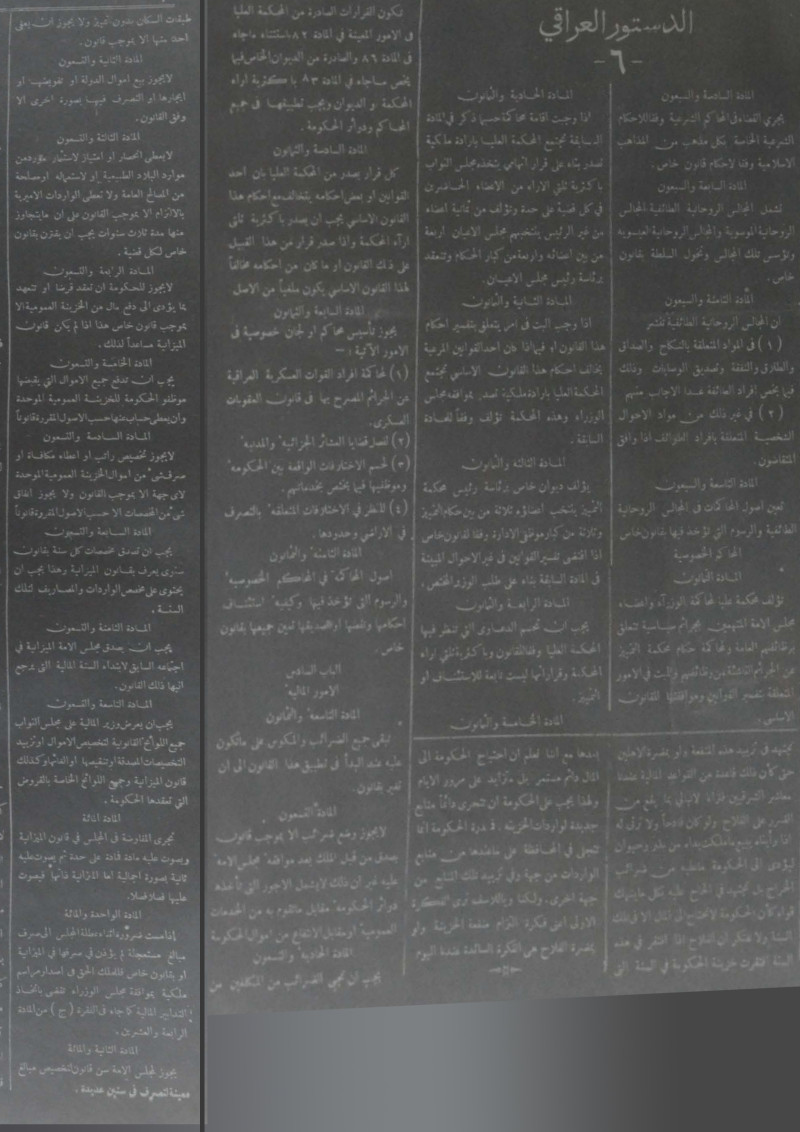 الدستور العراقي
-٦-
المادة السادسة والسبعون
يجري القضاء فى المحاكم الشرعية وفقا للاحكام
الشرعية الخاصة بكل مذهب من المذاهب
الاسلامية وفقا لاحكام قانون خاص.
المادة السابعة والسبعون
تشمل المجالس الروحانية الطائفية المجالس
الروحانية الموسوية والمجالس الروحانية العيسويه
وتؤسس تلك المجالس وتخول السلطة بقانون
خاص.
المادة الثامنة والسبعون
ان المجالس الروحانية الطائفية تنظر
(١) فى المواد المتعلقة بالنكاح والصداق
والطلاق والنفقة وتصديق الوصايات وذلك
فيما يختص افراد الطائفة عدا الاجانب منهم
(٢) فى غير ذلك من مواد الاحوال
الشخصية المتعلقة بافراد الطوائف اذا وافق
المتقاضون.
المادة التاسعة والسبعون
تعين اصول المحاكمات فى المجالس الروحانية
الطائفية والرسوم التى تؤخذ فيها بقانون خاص
المحاكم الخصوصية
المادة الثمانون
تؤلف محكمة عليا لمحاكمة الوزرآء واعضاء
مجلس الامة المتهمين بجرائم سياسية تتعلق
بوظائفهم العامة ولمحاكمة حكام محكمة التمييز
عن الجرائم الناشئة من وظائفهم والبت فى الامور
المتعلقة بتفسير القوانين وموافقتها للقانون
الاساسي.
المادة الحادية والثمانون
اذا وجبت اقامة محاكمة حسبما ذكر فى المادة
السابقة تجتمع المحكمة العليا بارادة ملكية
تصدر بناء على قرار اتهامي يتخذه مجلس النواب
باكثرية ثلثي الاراء من الاعضاء الحاضرين
فى كل قضية على حدة وتؤلف من ثمانية اعضاء
من غير الرئيس ينتخبهم مجلس الاعيان اربعة
من بين اعضائه واربعة من كبار الحكام وتنعقد
برئاسة رئيس مجلس الاعيان.
المادة الثانية والثمانون
اذا وجب البت فى امر يتعلق بتفسير احكام
هذا القانون او فيما اذا كان احد القوانين المرعية
يخالف احكام هذا القانون الاساسي تجتمع
المحكمة العليا بارادة ملكية تصدر بموافقة مجلس
الوزراء وهذه المحكمة تؤلف وفقاً للمادة
السابقة.
المادة الثالثة والثمانون
يؤلف ديوان خاص برئاسة رئيس محكمة
التمييز ينتخب اعضاؤه ثلاثة من بين حكام التمييز
وثلاثة من كبار موظفي الادارة وفقا لقانون خاص
اذا اقتضى تفسير القوانين فى غير الاحوال المبينة
فى المادة السابقة بناء على طلب الوزير المختص.
المادة الرابعة والثمانون
يجب ان تحسم الدعاوى التى تنظر فيها
المحكمة العليا وفقا للقانون وباكثرية ثلثي اراء
المحكمة وقراراتها ليست تابعة للاستئناف او
التمييز.
المادة الخامسة والثمانون
تكون القرارات الصادرة من المحكمة العليا
فى الامور المعينة فى المادة ٨٢ باستثناء ماجاء
فى المادة ٨٦ والصادرة من الديوان الخاص فيما
يختص بماجاء فى المادة ٨٣ باكثرية اراء
المحكمة و الديوان ويجب تطبيقها فى جميع
المحاكم ودوائر الحكومة.
المادة السادسة والثمانون
كل قرار يصدر من المحكمة العليا بان احد
القوانين او بعض احكامه يتخالف مع احكام هذا
القانون الاساسي يجب ان يصدر باكثرية ثلثي
ارآء المحكمة واذا صدر قرار من هذا القبيل
على ذلك القانون او ماكان من احكامه مخالفاً
لهذا القانون الاساسي يكون ملغياً من الاصل
المادة السابعة والثمانون
يجوز تأسيس محاكم او لجان خصوصية فى
الامور الآتية :—
(١) لمحاكمة افراد القوات العسكرية العراقية
عن الجرائم المصرح بها فى قانون العقوبات
العسكرى.
(٢) لفصل قضايا العشائر الجزائية والمدنية
(٣) لحسم الاختلافات الواقعة بين الحكومة
وموظفيها فيما يختص بخدماتهم.
(٤) للنظر فى الاختلافات المتعلقة بالتصرف
فى الاراضي وحدودها.
المادة الثامنة والثمانون
اصول المحاكمة فى المحاكم الخصوصية
والرسوم التى تؤخذ فيها وكيفية استئناف
احكامها ونقضها او تصديقها تعين جميعها بقانون
خاص.
الباب السادس
الامور المالية
المادة التاسعة والثمانون
تبقى جميع الضرائب والمكوس على ماتكون
عليه عند البدأ فى تطبيق هذا القانون الى ان
تغير بقانون.
المادة التسعون
لايجوز وضع ضرائب الا بموجب قانون
يصدق من قبل الملك بعد موافقة مجلس الامة
عليه غير ان ذلك لايشمل الاجور التى تأخذها
دوائر الحكومة مقابل ماتقوم به من الخدمات
العمومية او مقابل الانتفاع من اموال الحكومة
المادة الحادية والتسعون
يجب ان تجبى الضرائب من المكلفين من
طبقات السكان بدون تمييز ولا يجوز ان يعفى
احد منها الا بموجب قانون.
المادة الثانية والتسعون
لايجوز بيع اموال الدولة او تفويضها او
ايجارها او التصرف فيها بصورة اخرى الا
وفق القانون.
المادة الثالثة والتسعون
لايعطى انحصار او امتياز لاستثمار مورد من
موارد البلاد الطبيعية او لاستعماله او مصلحة
من المصالح العامة ولا تعطى الواردات الاميرية
بالالتزام الا بموجب القانون على ان مايتجاوز
منها مدة ثلاث سنوات يجب ان يقترن بقانون
خاص لكل قضية.
المادة الرابعة والتسعون
لايجوز للحكومة ان تعقد قرضا او تتعهد
بما يؤدى الى دفع مال من الخزينة العمومية الا
بموجب قانون خاص هذا اذا لم يكن قانون
الميزانية مساعداً لذلك.
المادة الخامسة والتسعون
يجب ان تدفع جميع الاموال التي يقبضها
موظفو الحكومة للخزينة العمومية الموحدة
وان يعطى حساب عنها حسب الاصول المقررة قانوناً
المادة السادسة والتسعون
لايجوز تخصيص راتب او اعطاء مكافاة او
صرف شئ من اموال الخزينة العمومية الموحدة
لاى جهة الا بموجب القانون ولا يجوز انفاق
شئ من المخصصات الا حسب الاصول المقررة قانوناً
المادة السابعة والتسعون
يجب ان تصدق مخصصات كل سنة بقانون
سنوى يعرف بقانون الميزانية وهذا يجب ان
يحتوى على مخمن الواردات والمصاريف لتلك
السنة.
المادة الثامنة والتسعون
يجب ان يصدق مجلس الامة الميزانية فى
اجتماعه السابق لابتداء السنة المالية التى يرجع
اليها ذلك القانون.
المادة التاسعة والتسعون
يجب ان يعرض وزير المالية على مجلس النواب
جميع اللوائح القانونية لتخصيص الاموال او تزييد
التخصيصات المصدقة او تنقيصها او الغائها وكذلك
قانون الميزانية وجميع اللوائح الخاصة بالقروض
التى تعقدها الحكومة.
المادة المائة
تجرى المفاوضة فى المجلس في قانون الميزانية
ويصوت عليه مادة فمادة على حدة ثم يصوت عليه
ثانية بصورة اجمالية اما الميزانية ذاتها فيصوت
عليها فصلا فصلا.
المادة الواحدة والمائة
اذا مست ضرورة اثناء عطلة المجلس الى صرف
مبالغ مستعجلة لم يؤذن فى صرفها في الميزانية
او بقانون خاص فللملك الحق فى اصدار مراسيم
ملكية بموافقة مجلس الوزراء تقضى باتخاذ
التدابير المالية كما جاء فى الفقرة (ج) من المادة
الرابعة والعشرين.
المادة الثانية والمائة
يجوز لمجلس الامة سن قانون لتخصيص مبالغ
معينة لتصرف فى سنين عديدة.
يجتهد فى تزييد هذه المنفعة ولو بمضرة الاهلين
حتى كأن ذلك قاعدة من القواعد المالية عندنا
معاشر الشرقيين فترانا لانبالي بما يقع من
الضرر على الفلاح
السنة افتقرت خزينة الحكومة في السنة التى
بعدها مع اننا نعلم ان احتياج الحكومة الى
المال دائم مستمر بل متزايد على مرور الايام
ولهذا يجب على الحكومة ان تتحرى دائماً منابع
جديدة لواردات الخزينة. فقدرة الحكومة انما
تتجلى فى المحافظة على ماعندها من منابع
الواردات من جهة وفى تزييد تلك المنابع من
جهة اخرى. ولكننا وياللاسف نرى الفكرة
الاولى اعنى فكرة التزام منفعة الخزينة ولو
بمضرة الفلاح هي الفكرة السائدة عندنا اليوم